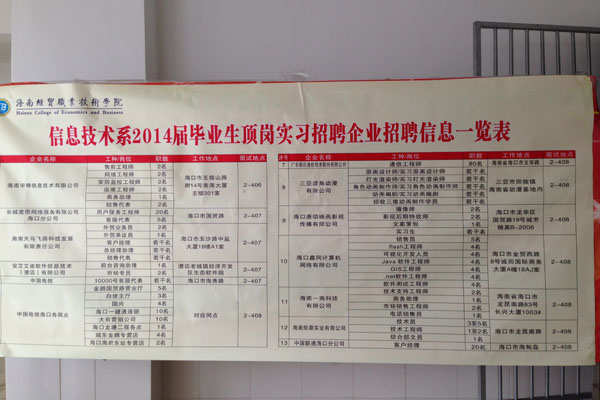 海南经贸职业技术学院
Hainan College of Economics and Business
信息技术系2014届毕业生顶岗实习招聘企业招聘信息一览表
企业名称 工种/岗位 职数 工作地点 面试地点
海南宇橋信息技术有限公司 海口市五指山路 2-406
售前工程师 2名
网络工程师 2名
安防监控工程师 2名
运维工程师 2名
商务助理 1名
销售代表 2名
用户服务工程师 20名 海口市国贸路 2-407
客服代表 5名
外贸业务员 2名
外贸单证员 1名
客户经理 若干名
总经理助理 若干名
销售代表 若干名
海南天马飞商科技发展有限责任公司 海口市龙沙路中盐大厦16楼A1室 2-407
前台咨询助理 1名
市站专员 2名
2-407
中国电信 10000号客服代表 若干名 海口市海秀路 2-407
中国电信海口各网点 对应网点 2-408
金鹏国贸路营业厅 5名
白坡主厅 3名
国兴 4名
海口一键通连锁 10名
大有营销公司 10名
海口龙塘二服务点 1名
城东金鹏专营店 4名
海口海府东灿专营店 2名
序号 企业名称 工种/岗位 职数 工作地点 面试地点
7 通信工程师 80名 海南省海口市文华路 2-408
8 三亚漾角动漫有限公司 三亚市回驰镇海南省动漫基地内 2-408
原画设计师/实习原画设计师 若干名
灯光渲染师/实习灯光渲染师 若干名
角色动画制作师/实习角色动画制作师 若干名
动画编剧/实习动画编剧 若干名
招收三维动画制作学员 若干名
9 海口市龙华区国贸路19号城市精英B-2006 2-408
摄像师 2名
影视后期特效师 2名
文案策划 1名
实习生 若干名
10 海口鑫网计算机网络有限公司 2-408
销售员 5名
flash工程师 4名
可视化开发人员 4名
Java 软件工程师 4名
GIS工程师 4名
net软件工程师 4名
软件测试工程师 4名
技术支持工程师 2名
11 海南一商科技有限公司 海南省海口市龙昆南路63号长兴大厦1003# 2-408
商务助理 1名
市场销售工程师 2名
电话销售员 1名
技术员 3至5名
12 海南恒鼎实业有限公司 海口市龙昆南路 2-408
技术工程师 1至2名
综合部文员 1名
13 中国联通海口分公司 客户经理 20名 海口市海甸岛 2-408